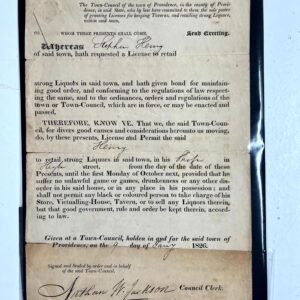 The Town-Council of the town of Providence, in the county of Providence, in said State, who by law have committed to them the sole power of granting Licenses for keeping Taverns, and retailing strong Liquors, within said town,
TO WHOM THESE PRESENTS SHALL COME, Send Greeting.
Whereas Stephen Henry
of said town, hath requested a License to retail
strong Liquors in said town, and hath given bond for maintain-
ing good order, and conforming to the regulations of law respect-
ing the same, and to the ordinances, orders and regulations of the
town or Town-Council, which are in force, or may be enacted and
passed.
THEREFORE, KNOW YE, That we, the said Town-Coun-
cil, for divers good causes and considerations hereunto us moving,
do, by these presents, License and Permit the said
Henry
to retail strong Liquors in said town, in his Shop in
street, from the day of the date of these
Presents, until the first Monday of October next, provided that he
suffer no unlawful game or games, drunkenness or any other dis-
order in his said house, or in any place in his possession; and
shall not permit any black or coloured person to take charge of his
Store, Victualling-House, Tavern, or to sell any Liquors therein,
but that good government, rule and order be kept therein, accord-
ing to law.
Given at a Town-Council, holden in and for the said town of
Providence, on the day of 1826.
Signed and Sealed by order and in behalf
of the said Town-Council.
Nathan W. Jackson Council Clerk.